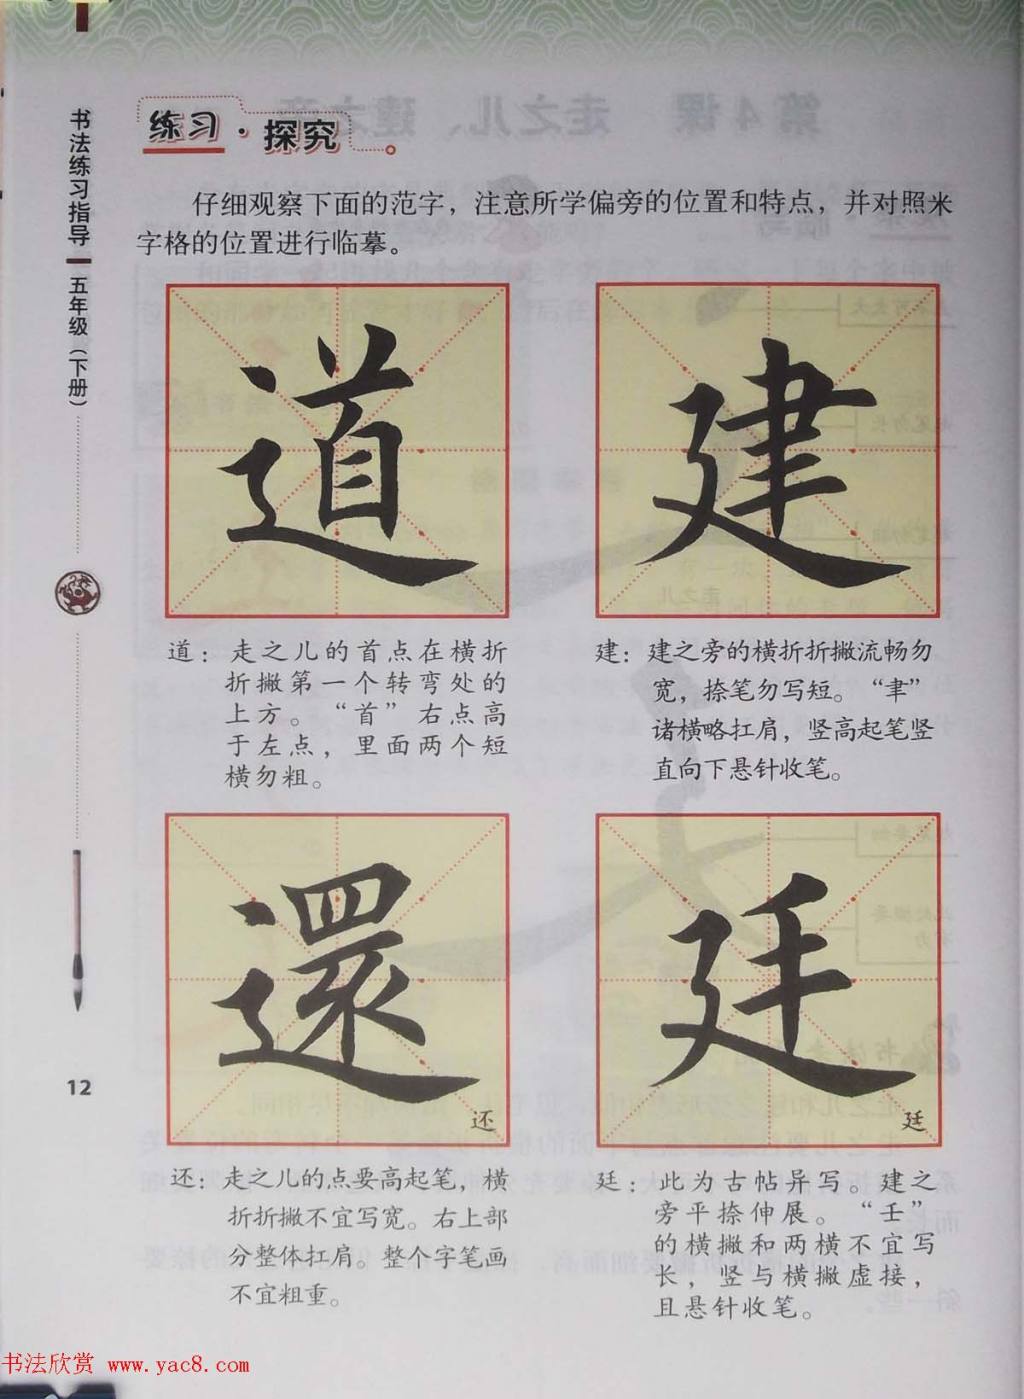 书法练习指导
五年级（下册）
12
练习·探究
仔细观察下面的范字，注意所学偏旁的位置和特点，并对照米
字格的位置进行临摹。
道
建
道：走之儿的首点在横折
折撇第一个转弯处的
上方。“首”右点高
于左点，里面两个短
横勿粗。
建：建之旁的横折折撇流畅勿
宽，捺笔勿写短。“聿”
诸横略扛肩，竖高起笔竖
直向下悬针收笔。
還
还
廷
廷
还：走之儿的点要高起笔，横
折折撇不宜写宽。右上部
分整体扛肩。整个字笔画
不宜粗重。
廷：此为古帖异写。建之
旁平捺伸展。“壬”
的横撇和两横不宜写
长，竖与横撇虚接，
且悬针收笔。
书法欣赏 www.yac8.com